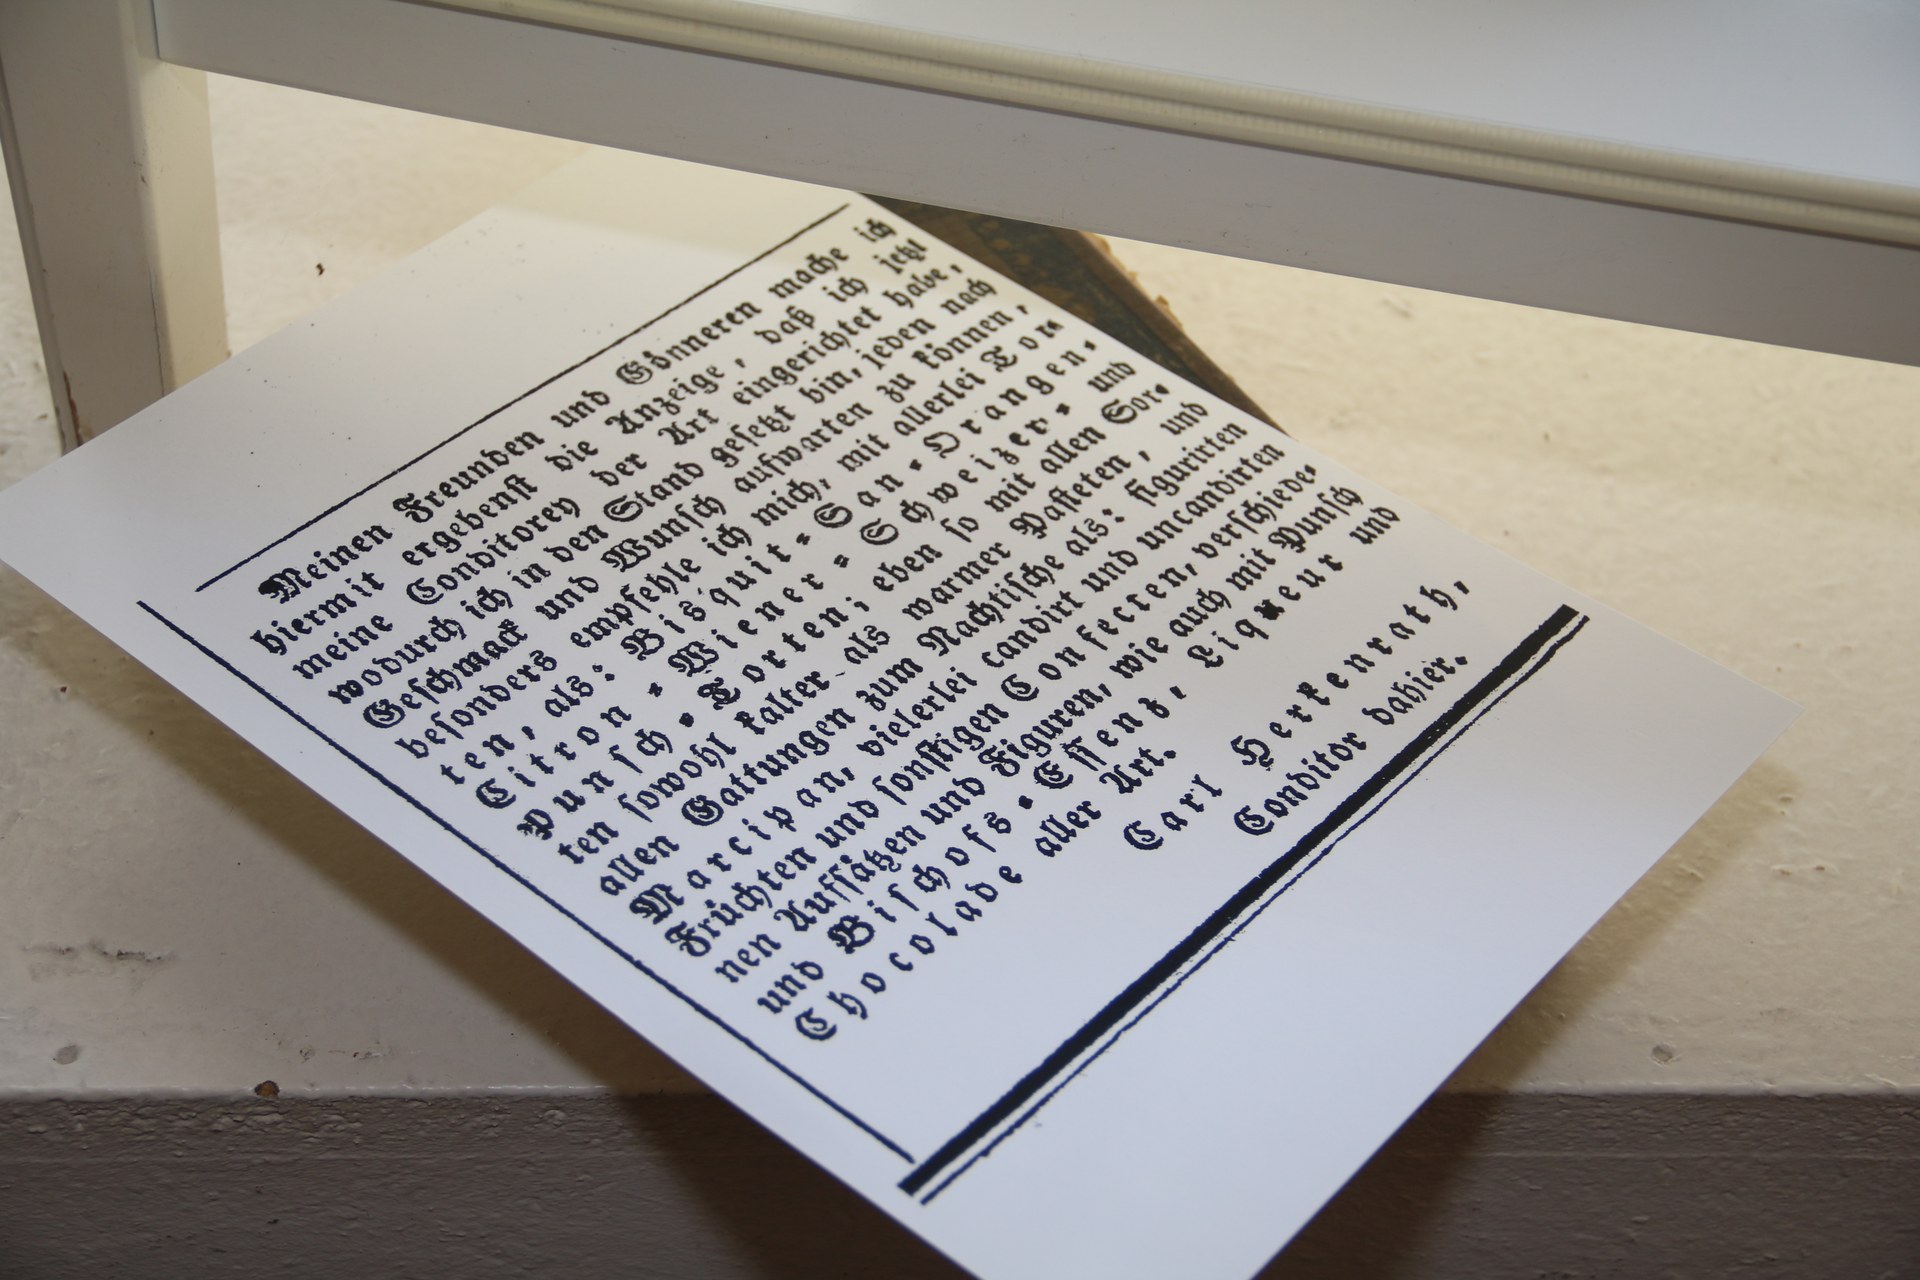 Meinen Freunden und Gönneren mache ich
hiermit ergebenst die Anzeige, daß ich jetzt
meine Conditorey der Art eingerichtet habe,
wodurch ich in den Stand gesetzt bin, jeden nach
Geschmack und Wunsch aufwarten zu können,
besonders empfehle ich mich, mit allerlei Tor-
ten, als: Bisquit- San- Orangen-
Citron- Wiener- Schweizer- und
Punsch-Torten; eben so mit allen Sor-
ten sowohl kalter als warmer Pasteten, und
allen Gattungen zum Nachtische als: figurirten
Marcipan, vielerlei candirt und uncandirten
Früchten und sonstigen Confecten, verschiede-
nen Aufsätzen und Figuren, wie auch mit Punsch
und Bischofs-Essenz, Liqueur und
Chocolade aller Art.
Carl Herkenrath,
Conditor dahier.